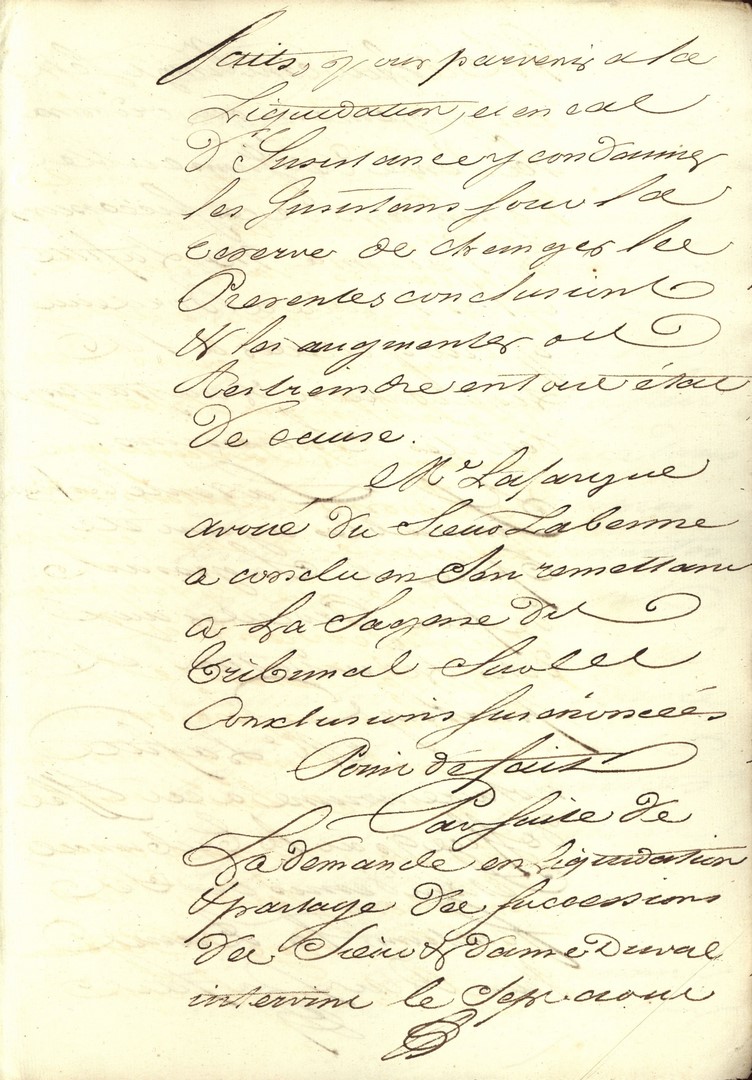 faits, & pour parvenir a la
Liquidation, et en cas
D'Insistance y condamner
les Insistans sous la
reserve de changer les
Presentes conclusions
& les augmenter ou
Restreindre en tout état
De cause.
Me Lafargue
avoué du Sieur Labenne
a conclu en s'en remettant
a La Sagesse du
Tribunal Sur les
Conclusions susénoncées
Point de fait
Par suite de
La demande en Liquidation
& partage des successions
des Sieur & dame Duval
intervint le Sept aout